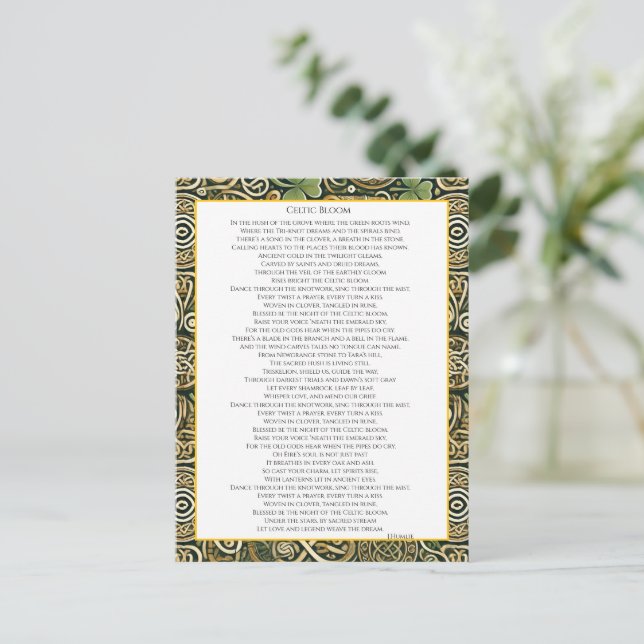 Celtic Bloom
In the hush of the grove where the green roots wind,
Where the Tri-knot dreams and the spirals bind,
There's a song in the clover, a breath in the stone,
Calling hearts to the places their blood has known.
Ancient gold in the twilight gleams,
Carved by saints and druid dreams,
Through the veil of the earthly gloom
Rises bright the Celtic bloom
Dance through the knotwork, sing through the mist,
Every twist a prayer, every turn a kiss.
Woven in clover, tangled in rune,
Blessed be the night of the Celtic bloom.
Raise your voice 'neath the emerald sky,
For the old gods hear when the pipes do cry.
There's a blade in the branch and a bell in the flame,
And the wind carves tales no tongue can name.
From Newgrange stone to Tara's hill,
The sacred hush is living still.
Triskelion, shield us, guide the way,
Through darkest trials and dawn's soft gray
Let every shamrock, leaf by leaf,
Whisper love, and mend our grief.
Dance through the knotwork, sing through the mist,
Every twist a prayer, every turn a kiss.
Woven in clover, tangled in rune,
Blessed be the night of the Celtic bloom.
Raise your voice 'neath the emerald sky,
For the old gods hear when the pipes do cry.
Oh Éire's soul is not just past
It breathes in every oak and ash.
So cast your charm, let spirits rise,
With lanterns lit in ancient eyes.
Dance through the knotwork, sing through the mist,
Every twist a prayer, every turn a kiss.
Woven in clover, tangled in rune,
Blessed be the night of the Celtic bloom.
Under the stars, by sacred stream
Let love and legend weave the dream.
J.Humlie